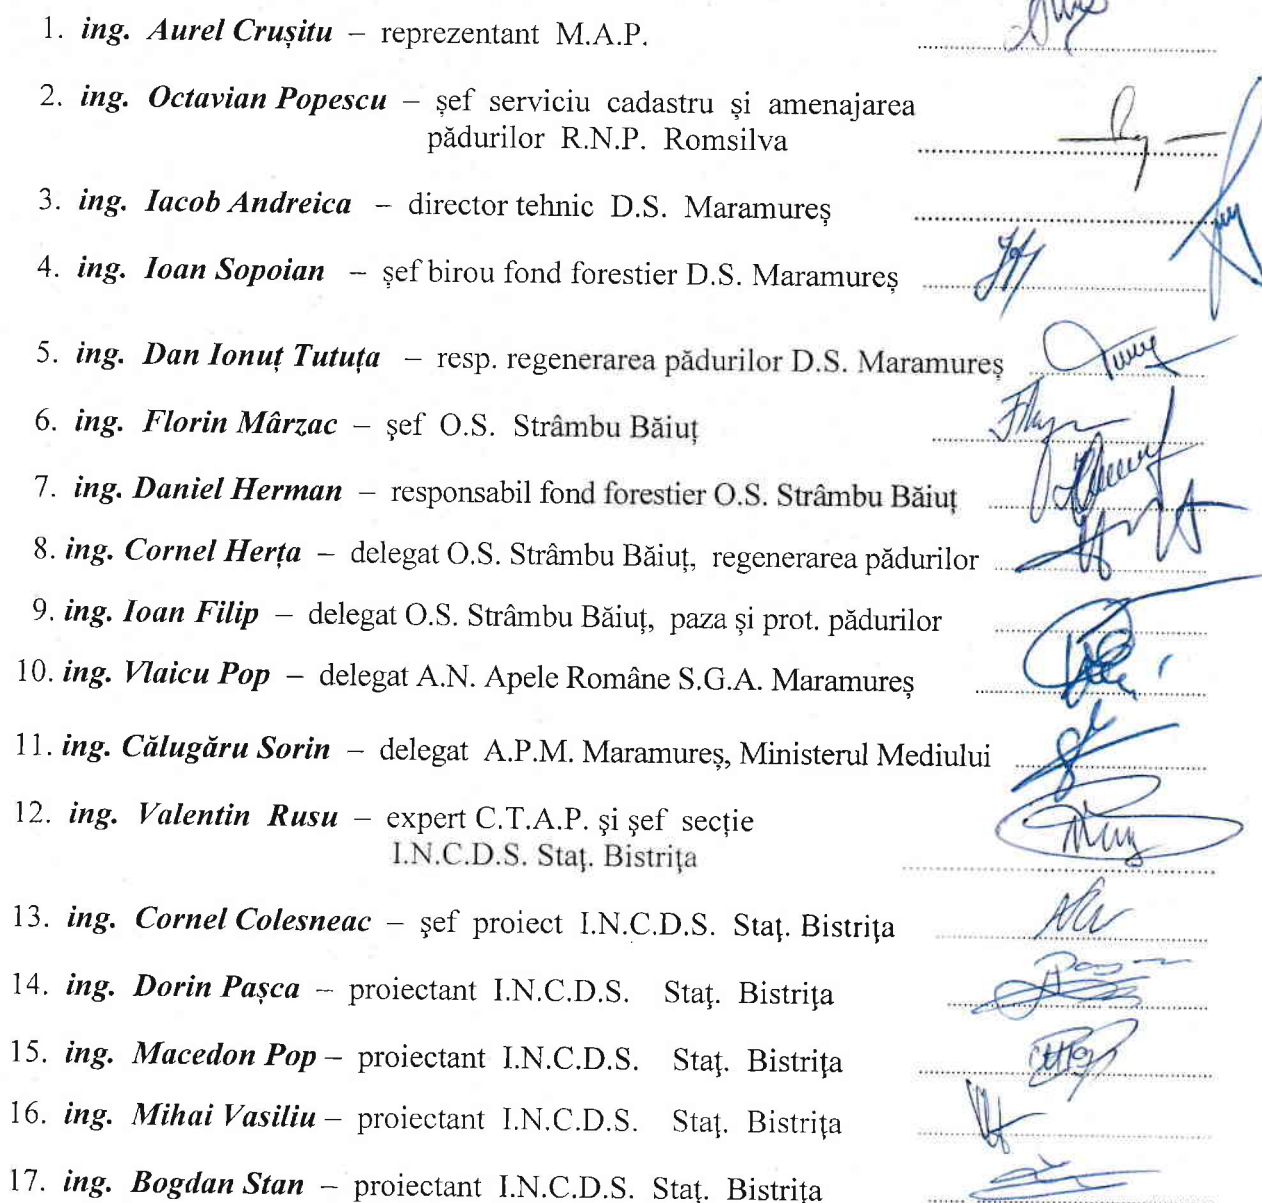 1. ing. Aurel Crușitu – reprezentant M.A.P.
2. ing. Octavian Popescu – șef serviciu cadastru și amenajarea
pădurilor R.N.P. Romsilva
3. ing. Iacob Andreica – director tehnic D.S. Maramureș
4. ing. Ioan Sopoian – șef birou fond forestier D.S. Maramureș
5. ing. Dan Ionuț Tutuța – resp. regenerarea pădurilor D.S. Maramureș
6. ing. Florin Mârzac – șef O.S. Strâmbu Băiuț
7. ing. Daniel Herman – responsabil fond forestier O.S. Strâmbu Băiuț
8. ing. Cornel Herța – delegat O.S. Strâmbu Băiuț, regenerarea pădurilor
9. ing. Ioan Filip – delegat O.S. Strâmbu Băiuț, paza și prot. pădurilor
10. ing. Vlaicu Pop – delegat A.N. Apele Române S.G.A. Maramureș
11. ing. Călugăru Sorin – delegat A.P.M. Maramureș, Ministerul Mediului
12. ing. Valentin Rusu – expert C.T.A.P. și șef secție
I.N.C.D.S. Staț. Bistrița
13. ing. Cornel Colesneac – șef proiect I.N.C.D.S. Staț. Bistrița
14. ing. Dorin Pașca – proiectant I.N.C.D.S. Staț. Bistrița
15. ing. Macedon Pop – proiectant I.N.C.D.S. Staț. Bistrița
16. ing. Mihai Vasiliu – proiectant I.N.C.D.S. Staț. Bistrița
17. ing. Bogdan Stan – proiectant I.N.C.D.S. Staț. Bistrița